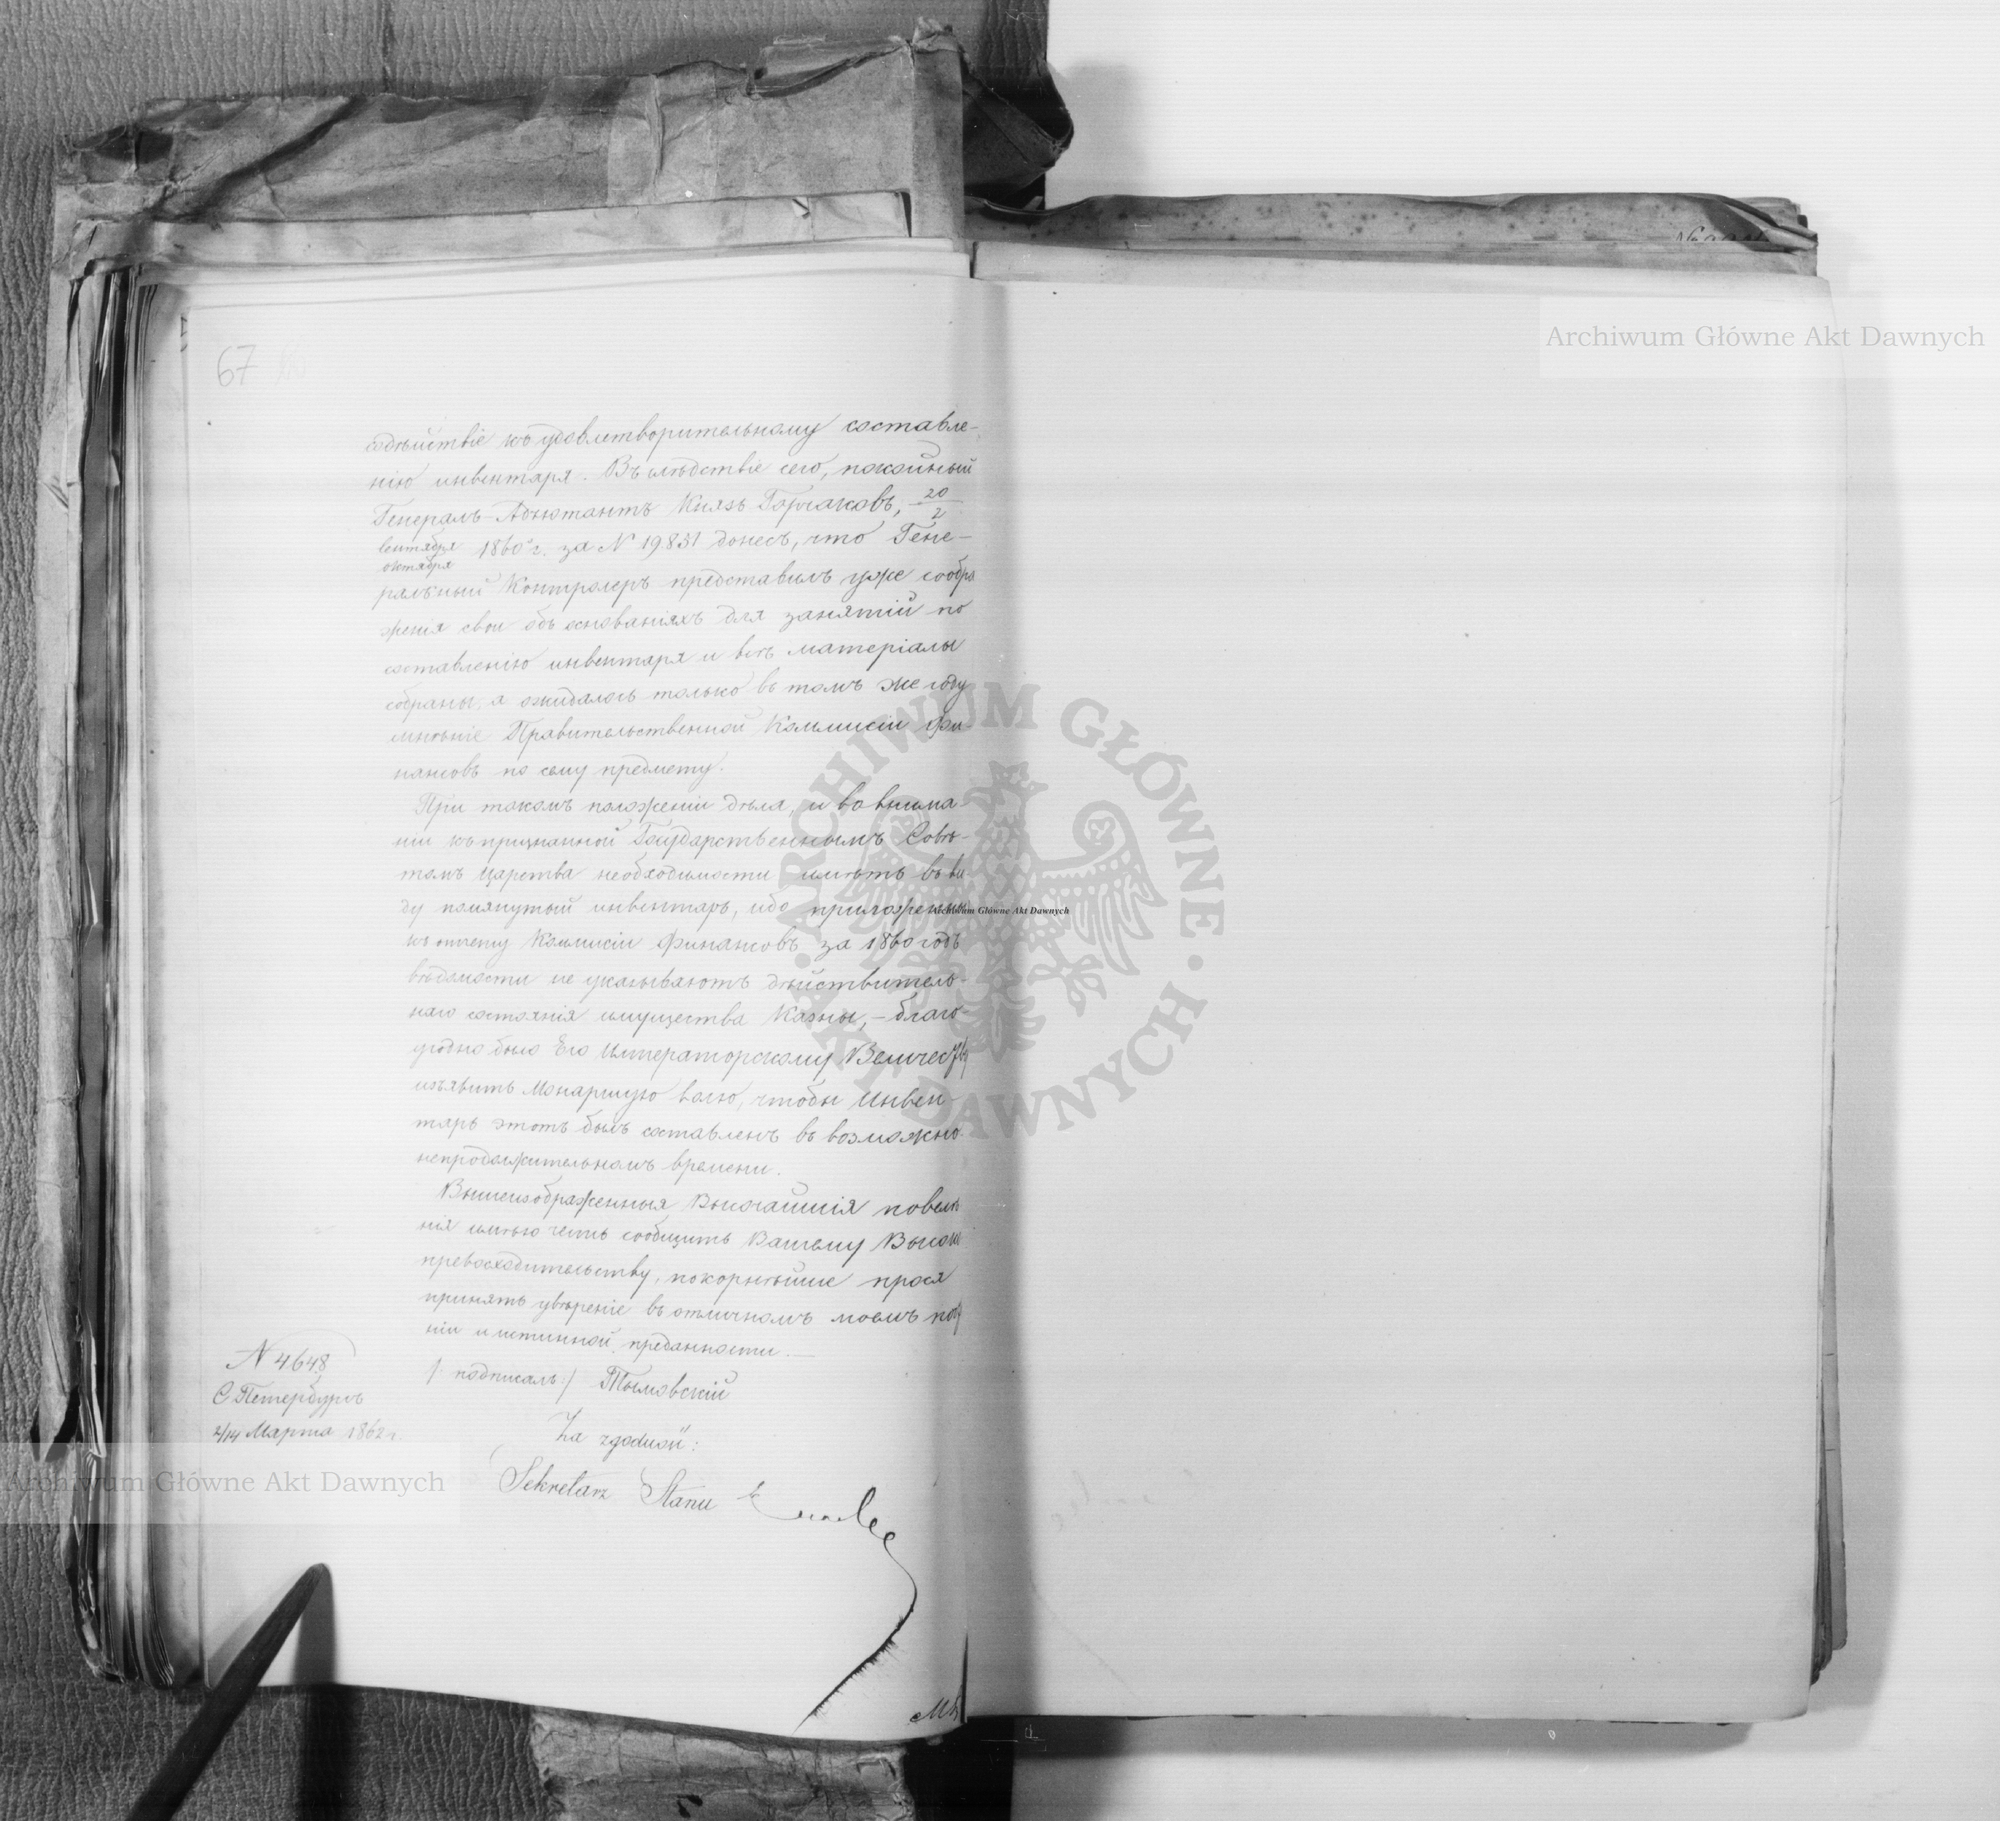 67
содѣйствіе къ удовлетворительному составле-
нію инвентаря. Въ слѣдствіе сего, покойный
Генералъ-Адъютантъ Князь Горчаковъ, 20/2
Сентября/Октября 1860 г. за N 19831 донесъ, что Гене-
ральный Контролеръ представилъ уже сообра
женія свои объ основаніяхъ для занятій по
составленію инвентаря и всѣ матеріалы
собраны, а ожидалось только въ томъ же году
мнѣніе Правительственной Коммисіи Фи-
нансовъ по сему предмету.
При такомъ положеніи дѣла, и во внима-
ніи къ признанной Государственнымъ Совѣ-
томъ Царства необходимости имѣть въ ви-
ду помянутый инвентарь, ибо приложенныя
къ отчету Коммисіи Финансовъ за 1860 годъ
вѣдомости не указываютъ дѣйствитель-
наго состоянія имущества Казны, - благо-
угодно было Его Императорскому Величеству
изъявить Монаршую волю, чтобы Инвен-
тарь этотъ былъ составленъ въ возможно
непродолжительномъ времени.
Вышеизображенныя Высочайшія повелѣ
нія имѣю честь сообщить Вашему Высоко
превосходительству, покорнѣйше прося
принять увѣреніе въ отличномъ моемъ
ніи и истинной преданности.
/: подписалъ :/ Тымовскій
N 4648
С Петербургъ
2/14 Марта 1862 г.
Za zgodność:
Sekretarz Stanu
Archiwum Główne Akt Dawnych
Archiwum Główne Akt Dawnych
Archiwum Główne Akt Dawnych
ARCHIWUM GŁÓWNE AKT DAWNYCH